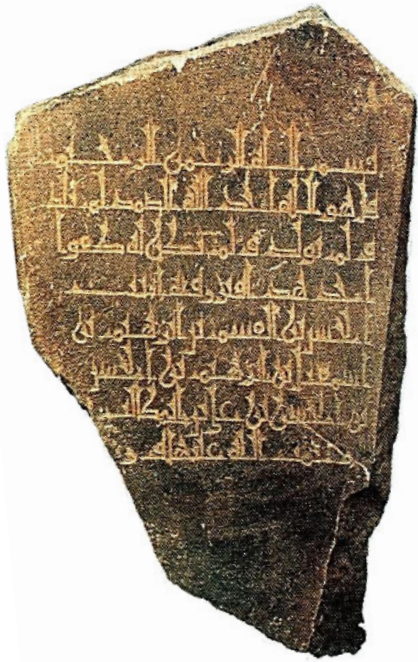 بسم الله الرحمن الرحيم
قل هو الله احد الله الصمد لم يلد
ولم يولد ولم يكن له كفوا
احد هذا قبر
الحسن بن القسم بن ابرهيم بن
اسمعيل بن ابرهيم بن الحسن
بن الحسن بن علي بن ابي طالب
الله